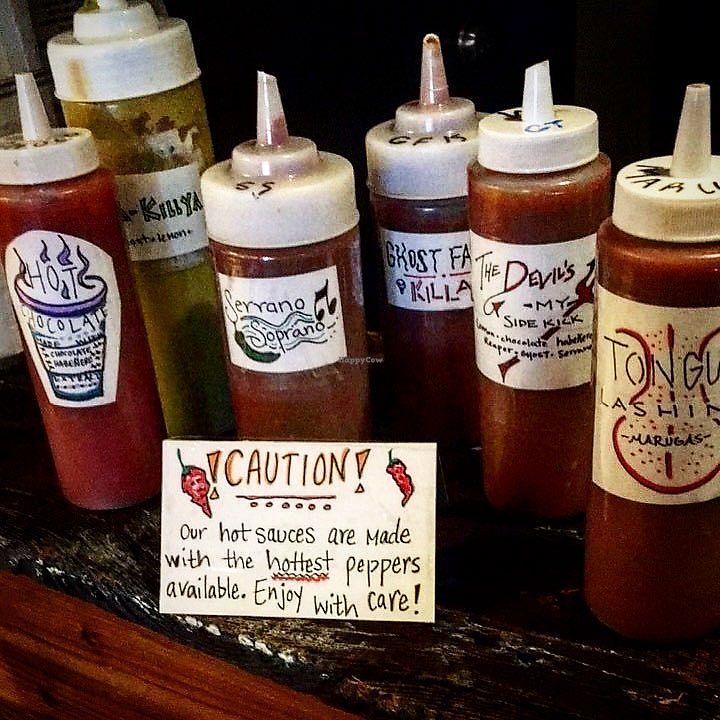 HOT
CHOCOLATE
MADE WITH
CHOCOLATE
HABEÑERO
-KILLYA
ghost • lemon •
S.S
Serrano
Soprano
GFK
GHOST FA
KILLA
GT
THE DEVIL'S
-MY-
SIDE KICK
chocolate habeñero
Reaper • Ghost • Serrano
MARU
TONGU
LASHIN
-MARUGAS-
HappyCow
!CAUTION!
Our hot sauces are Made
with the hottest peppers
available. Enjoy with care!